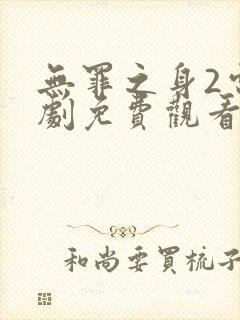 無罪之身2
劇免費觀看
和尚要買梳子